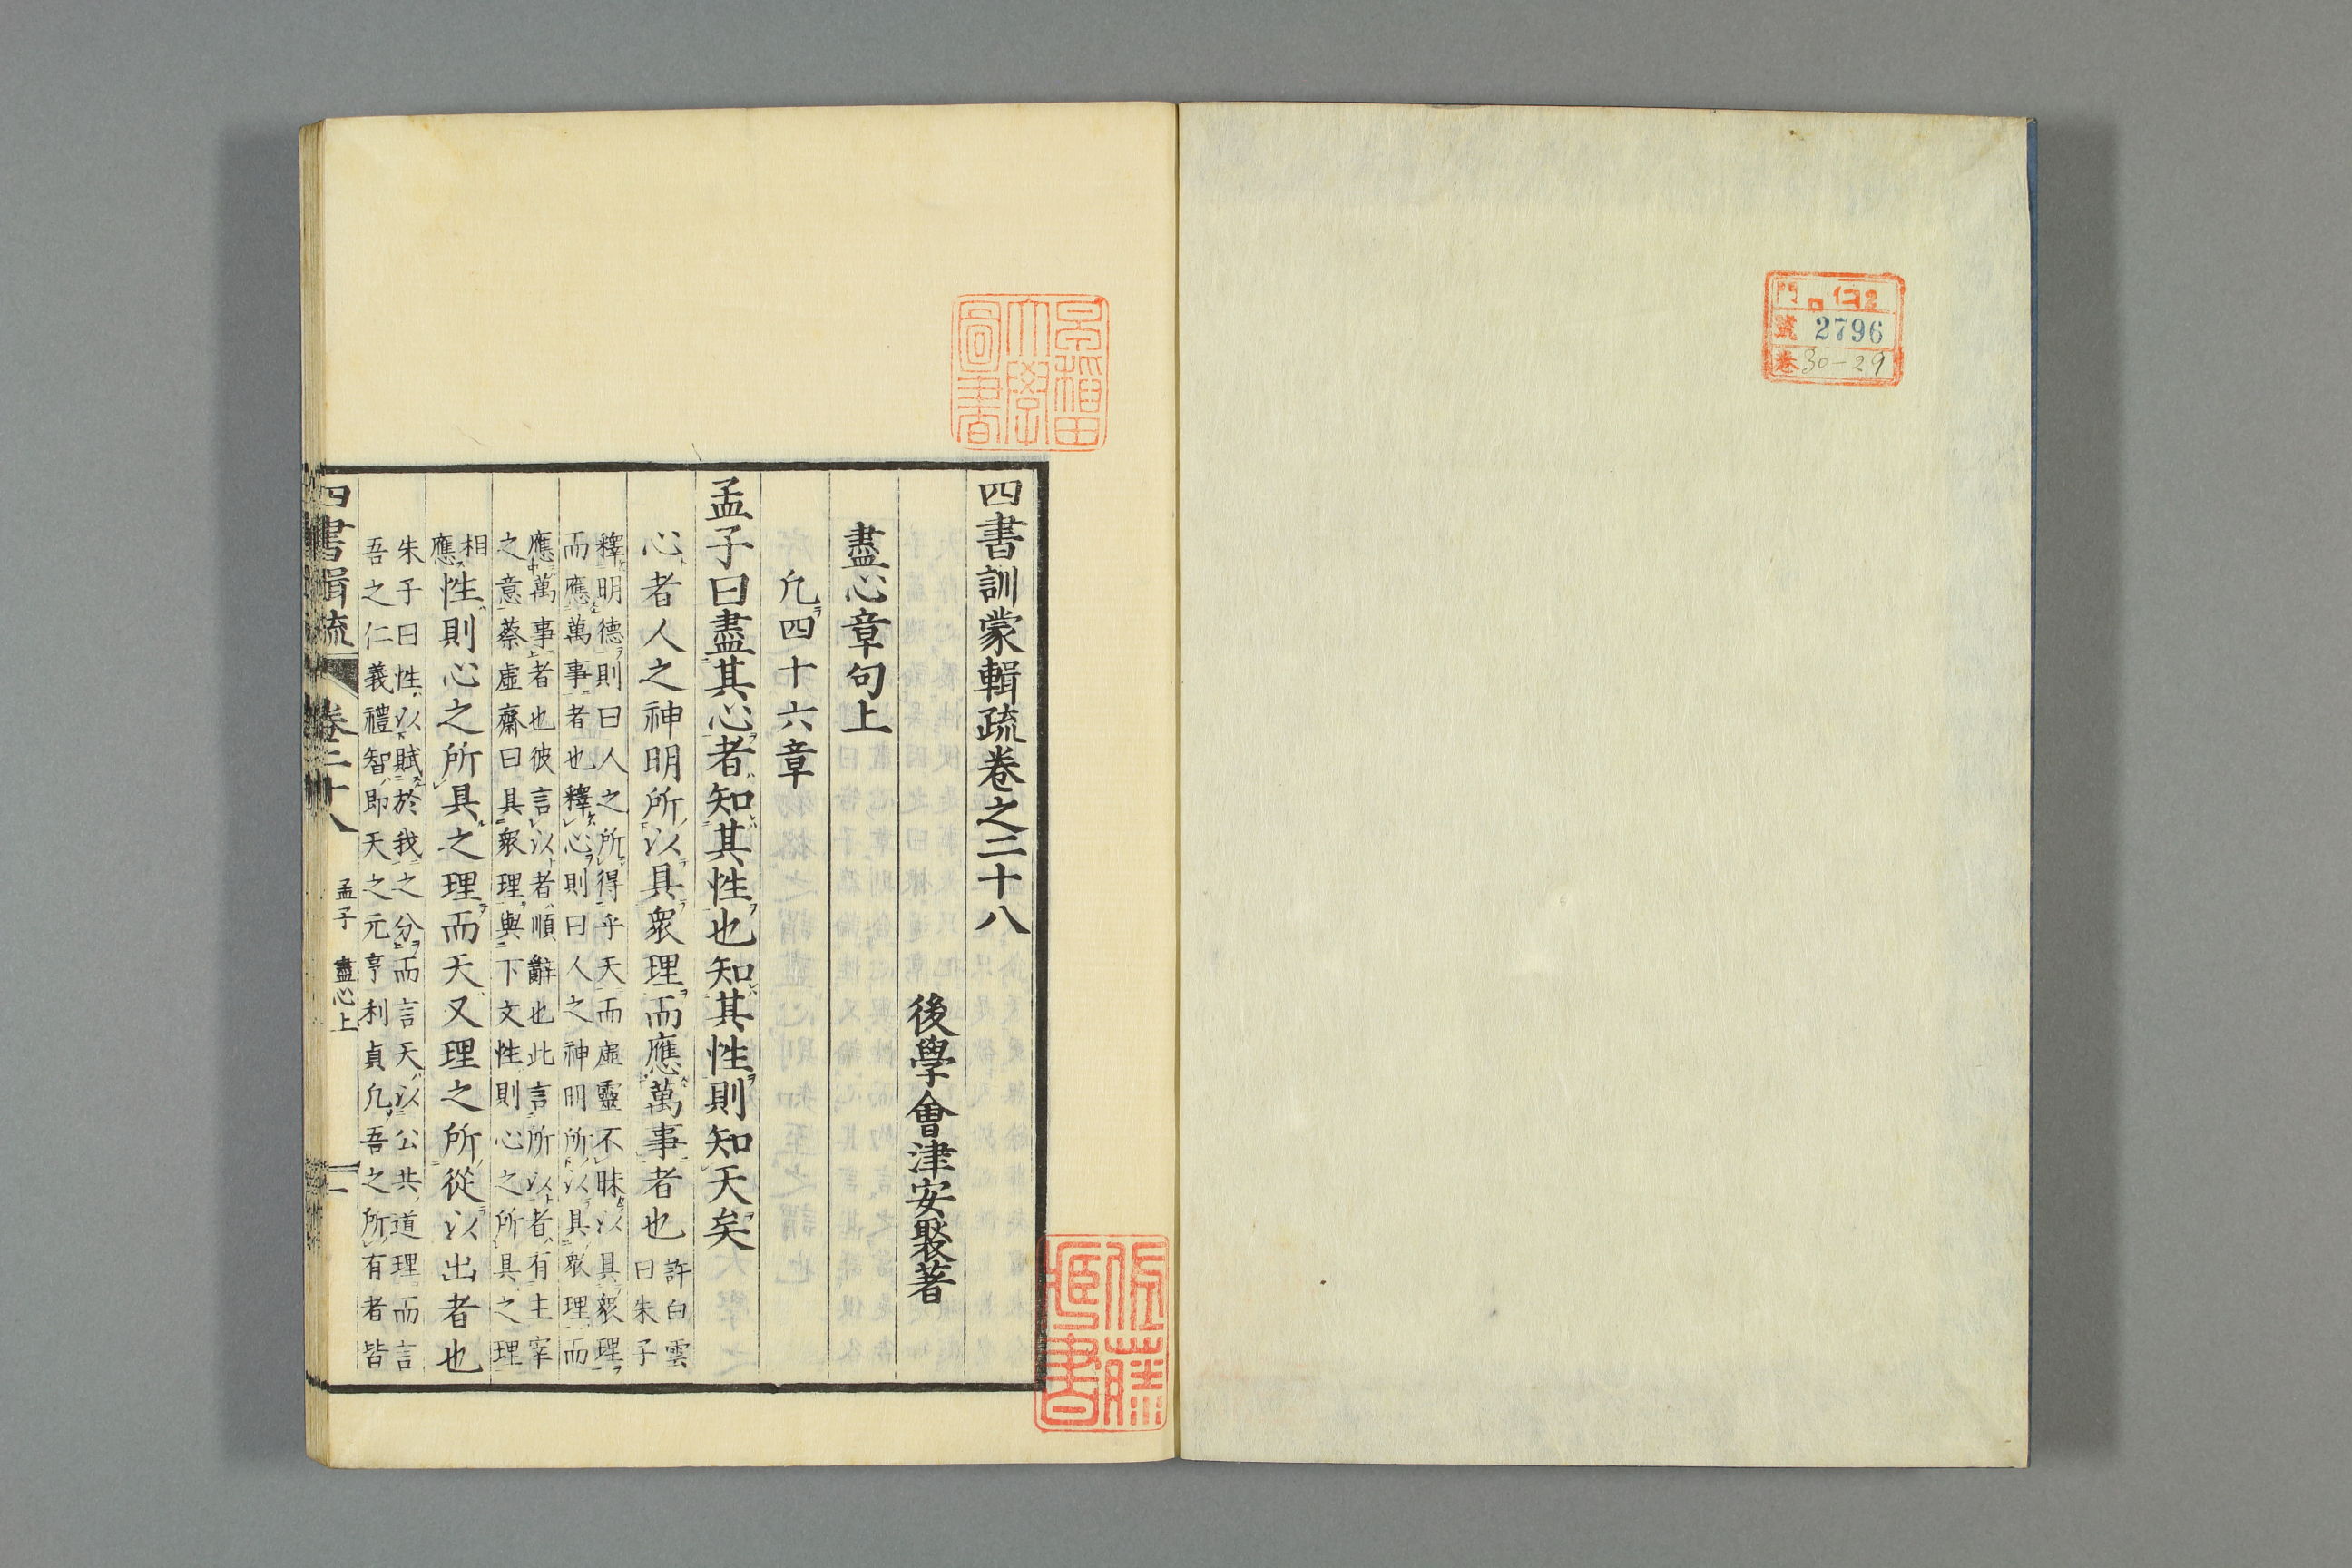 門 ロ 仁2
號 2796
卷 30-29
早稲田大學圖書
四書訓蒙輯疏卷之二十八
後學會津安褧著
佐藤臧書
盡心章句上
凢四十六章
孟子曰盡其心者知其性也知其性則知天矣
心者人之神明所以具衆理而應萬事者也許白雲
曰朱子
釋明德則曰人之所得乎天而虛靈不昧以具衆理
而應萬事者也釋心則曰人之神明所以具衆理而
應萬事者也彼言以者順辭也此言所以者有主宰
之意蔡虛齋曰具衆理與下文性則心之所具之理
相
應性則心之所具之理而天又理之所從以出者也
朱子曰性以賦於我之分而言天以公共道理而言
吾之仁義禮智即天之元亨利貞凢吾之所有者皆
四書輯疏 卷二十八 孟子 盡心上 一